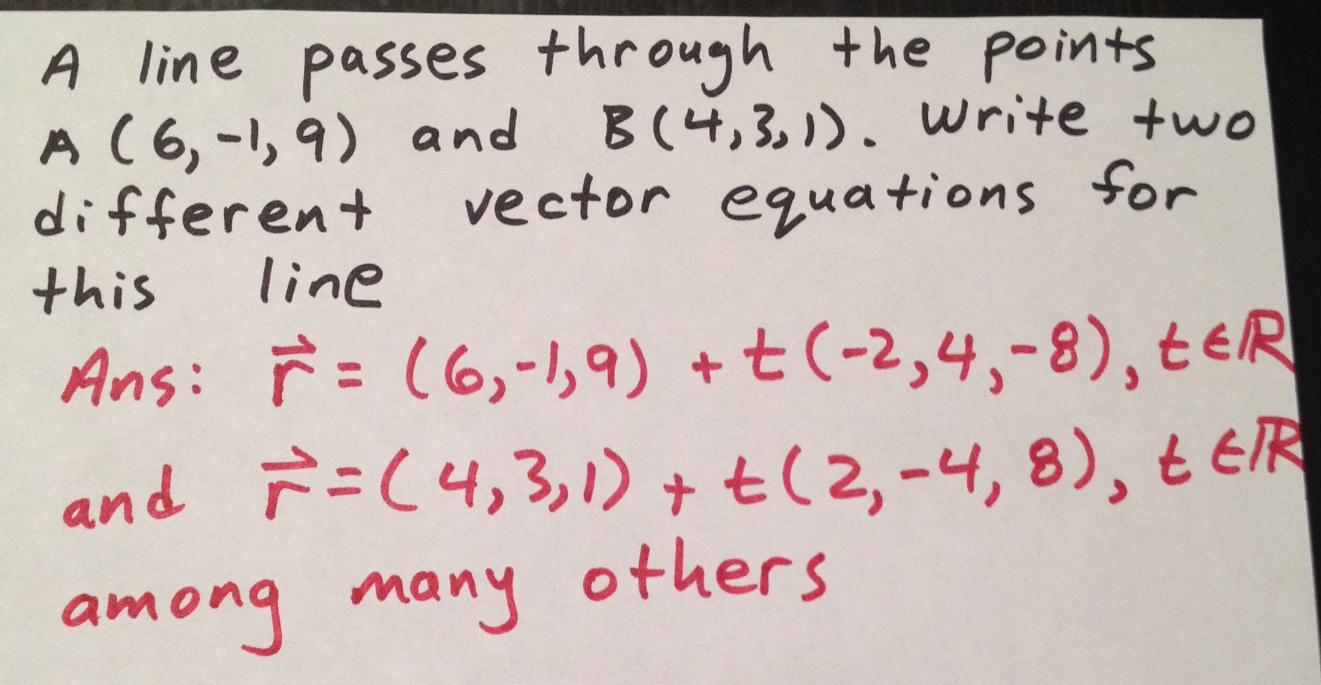 A line passes through the points
A (6,-1,9) and B(4,3,1). Write two
different vector equations for
this line
Ans: r⃗ = (6,-1,9) + t(-2,4,-8), t∈ℝ
and r⃗=(4,3,1) + t(2,-4,8), t∈ℝ
among many others